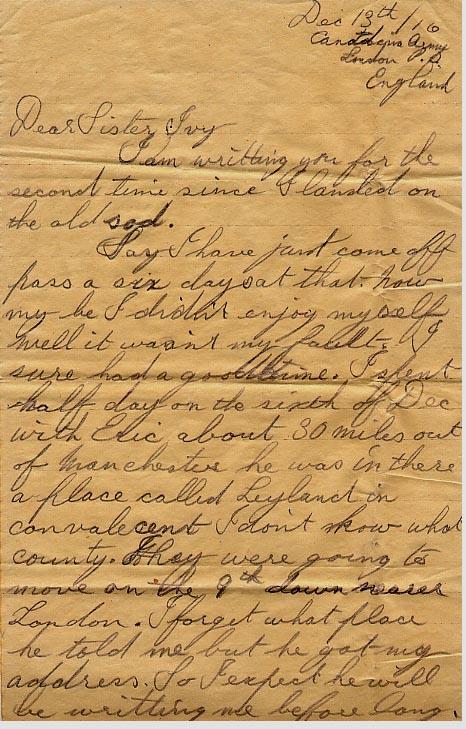 Dec 13th/16
Canadians Army
London P.O.
England
Dear Sister Ivy
I am writting you for the
second time since I landed on
the old sod.
Say I have just come off
pass a six days at that. now
my be I didn't enjoy myself
well it wasn't my fault. I
sure had a good time. I spent
half day on the sixth of Dec
with Eric about 30 miles out
of Manchester he was in there
a place called Leyland in
convalecent I don't know what
county. They were going to
move on the 9th down nearer
London. I forget what place
he told me but he got my
address. So I expect he will
be writting me before long.